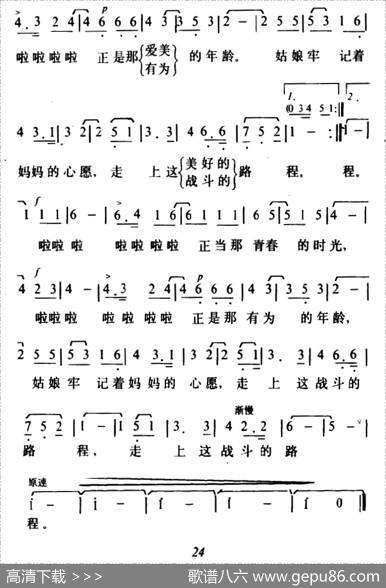 4. 3 2 4 | 4 6 6 6 | 4 3 | 3 5 3 | 2 - | 2 5 5 | 5 3 1 6 |
啦啦啦啦 正是那{爱美 的年龄。 姑娘牢 记着
有为
1. 2.
(0 3 4 5 1 :||
4 3.1 | 3 2 | 2 5 1 | 3.3 | 4 6.6 | 7 5 2 | 1 - :|| 1 - |
妈妈的心愿,走 上这{美好的 路 程。 程。
战斗的
f
1 1 1 | 6 - | 6.4 1 6 | 6 1 1 1 | 6 5 | 5 1 5 | 4 - |
啦啦 啦 啦啦啦啦 正当那 青春 的时光,
f p
4 2 3 | 4 - | 4.3 2 4 | 4 6 6 6 | 4 3 | 3 5 3 | 2 - |
啦啦 啦 啦 啦啦啦 正是那 有为 的年龄,
2 5 5 | 5 3 1 6 | 4 3.1 | 3 2 | 2 5 1 | 3. 3 | 4 6.6 |
姑娘牢 记着妈妈的 心愿,走 上 这战斗的
渐慢
7 5 2 | 1 - | 1 5 1 | 3. 3 | 4 2.2 | 6 - | 5 - |
路 程, 走 上 这战斗的 路
原速
i - | i - | f - | f - | f 0 ||
程。
24
高清下载 >>>
歌谱八六 www.gepu86.com